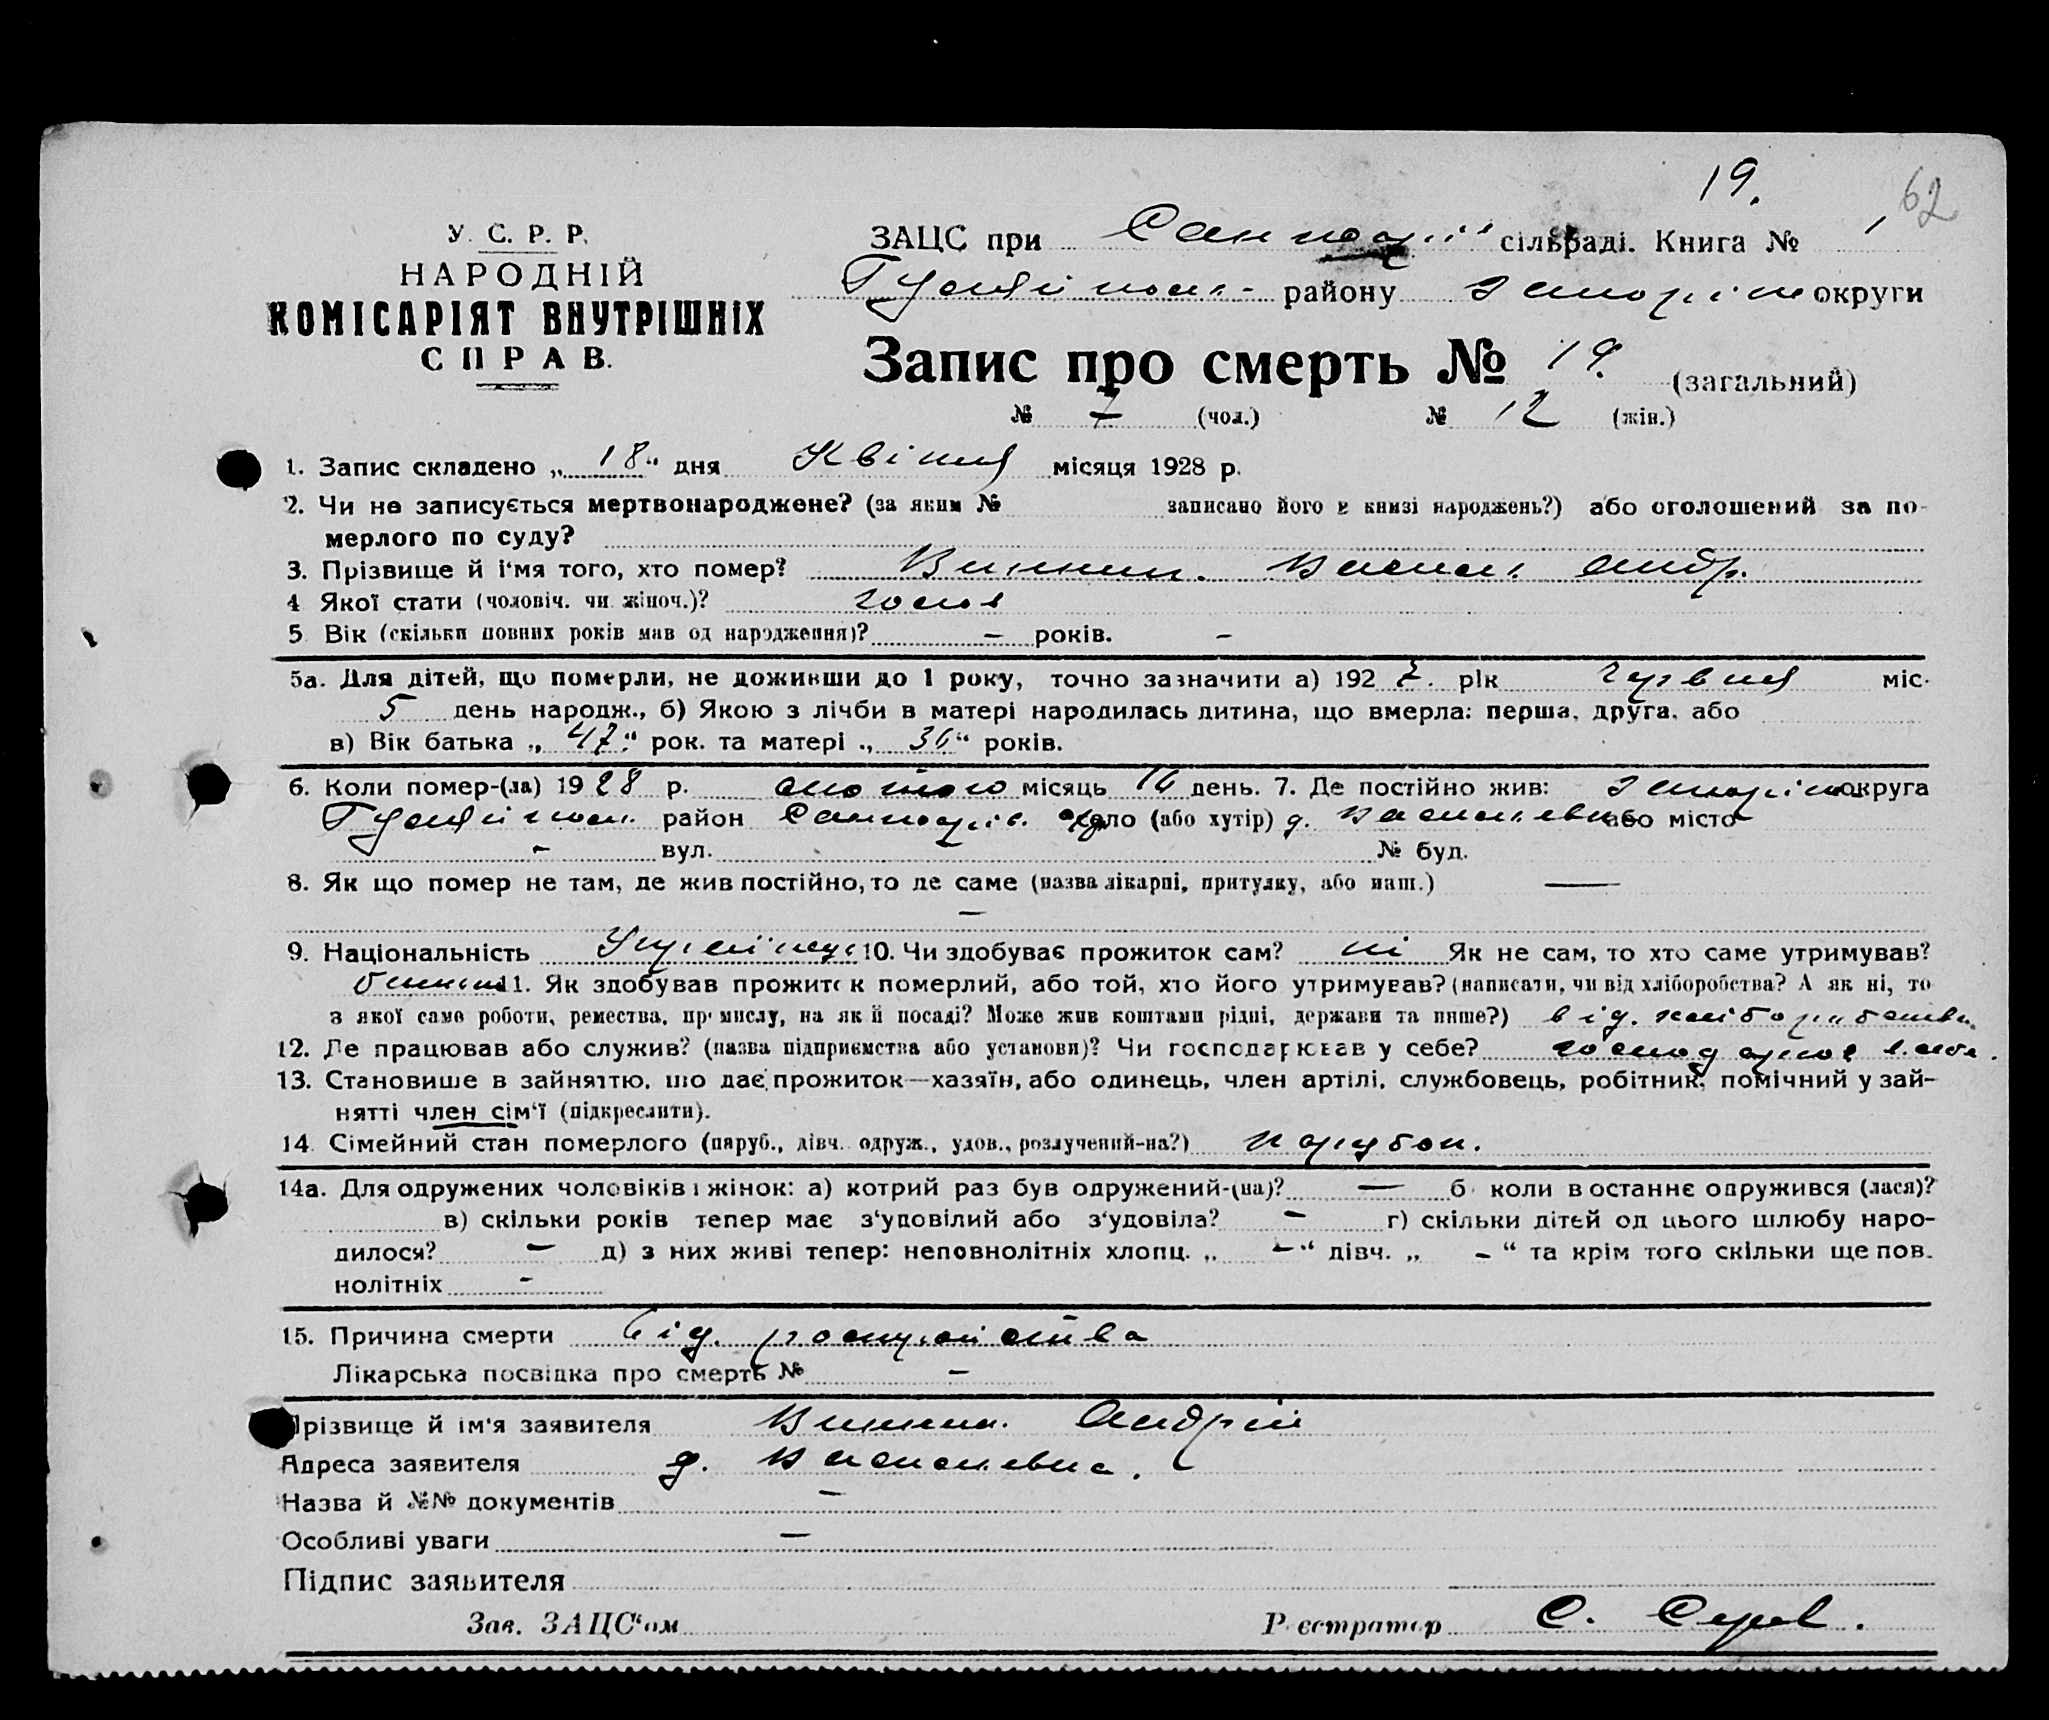 19.
62
У. С. Р. Р.
НАРОДНІЙ
КОМІСАРІЯТ ВНУТРІШНІХ
СПРАВ.
ЗАЦС при сільраді. Книга № 1
району округи
Запис про смерть № 19. (загальний)
№ 7 (чол.) № 12 (жін.)
1. Запис складено „ 18 “ дня Квітня місяця 1928 р.
2. Чи не записується мертвонароджене? (за яким № записано його в книзі народжень?) або оголошений за по-
мерлого по суду?
3. Прізвище й і'мя того, хто помер? Андр.
4 Якої стати (чоловіч. чи жіноч.)?
5. Вік (скільки повних років мав од народження)? – років. –
5а. Для дітей, що померли, не доживши до 1 року, точно зазначити а) 1927 рік Червня міс.
5 день народж., б) Якою з лічби в матері народилась дитина, що вмерла: перша, друга, або
в) Вік батька „ 47 “ рок. та матері „ 36 “ років.
6. Коли помер-(ла) 1928 р. лютого місяць 16 день. 7. Де постійно жив: округа
район село (або хутір) або місто
– вул. – № буд.
8. Як що помер не там, де жив постійно, то де саме (назва лікарні, притулку, або инш.) —
–
9. Національність 10. Чи здобував прожиток сам? ні Як не сам, то хто саме утримував?
батько 11. Як здобував прожиток померлий, або той, хто його утримував? (написати, чи від хліборобства? А як ні, то
з якої саме роботи, ремества, промислу, на якій посаді? Може жив коштами рідні, держави та инше?) від. хліборобства
12. Де працював або служив? (назва підприємства або установи)? Чи господарював у себе?
13. Становище в зайняттю, що дає прожиток—хазяїн, або одинець, член артілі, службовець, робітник, помічний у зай-
нятті член сім'ї (підкреслити).
14. Сімейний стан померлого (паруб., дівч. одруж., удов., розлучений-на?) парубок.
14а. Для одружених чоловіків і жінок: а) котрий раз був одружений-(на)? — б) коли в останнє одружився (лася)?
в) скільки років тепер має з'удовілий або з'удовіла? – г) скільки дітей од цього шлюбу наро-
дилося? – д) з них живі тепер: неповнолітніх хлопц. „ – “ дівч. „ – “ та крім того скільки ще пов.
нолітніх –
15. Причина смерти від.
Лікарська посвідка про смерть № –
Прізвище й ім'я заявителя Андрій
Адреса заявителя
Назва й №№ документів –
Особливі уваги –
Підпис заявителя
Зав. ЗАЦС'ом Реєстратор С.